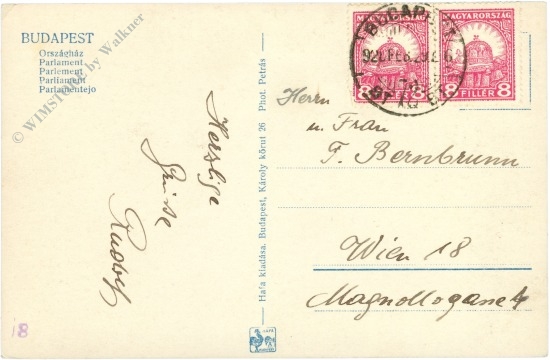 BUDAPEST
Országház
Parlament
Parlement
Parliament
Parlamentejo
© WIMSTORE by Walkner
Herzlige
Grüsse
Rudolf
18
Hafa kiadása. Budapest, Károly körut 26 Phot. Petrás
MAGYARORSZÁG
8 FILLÉR 8
MAGYARORSZÁG
8 FILLÉR 8
Herrn
u. Frau
F. Bernbrunn
Wien 18